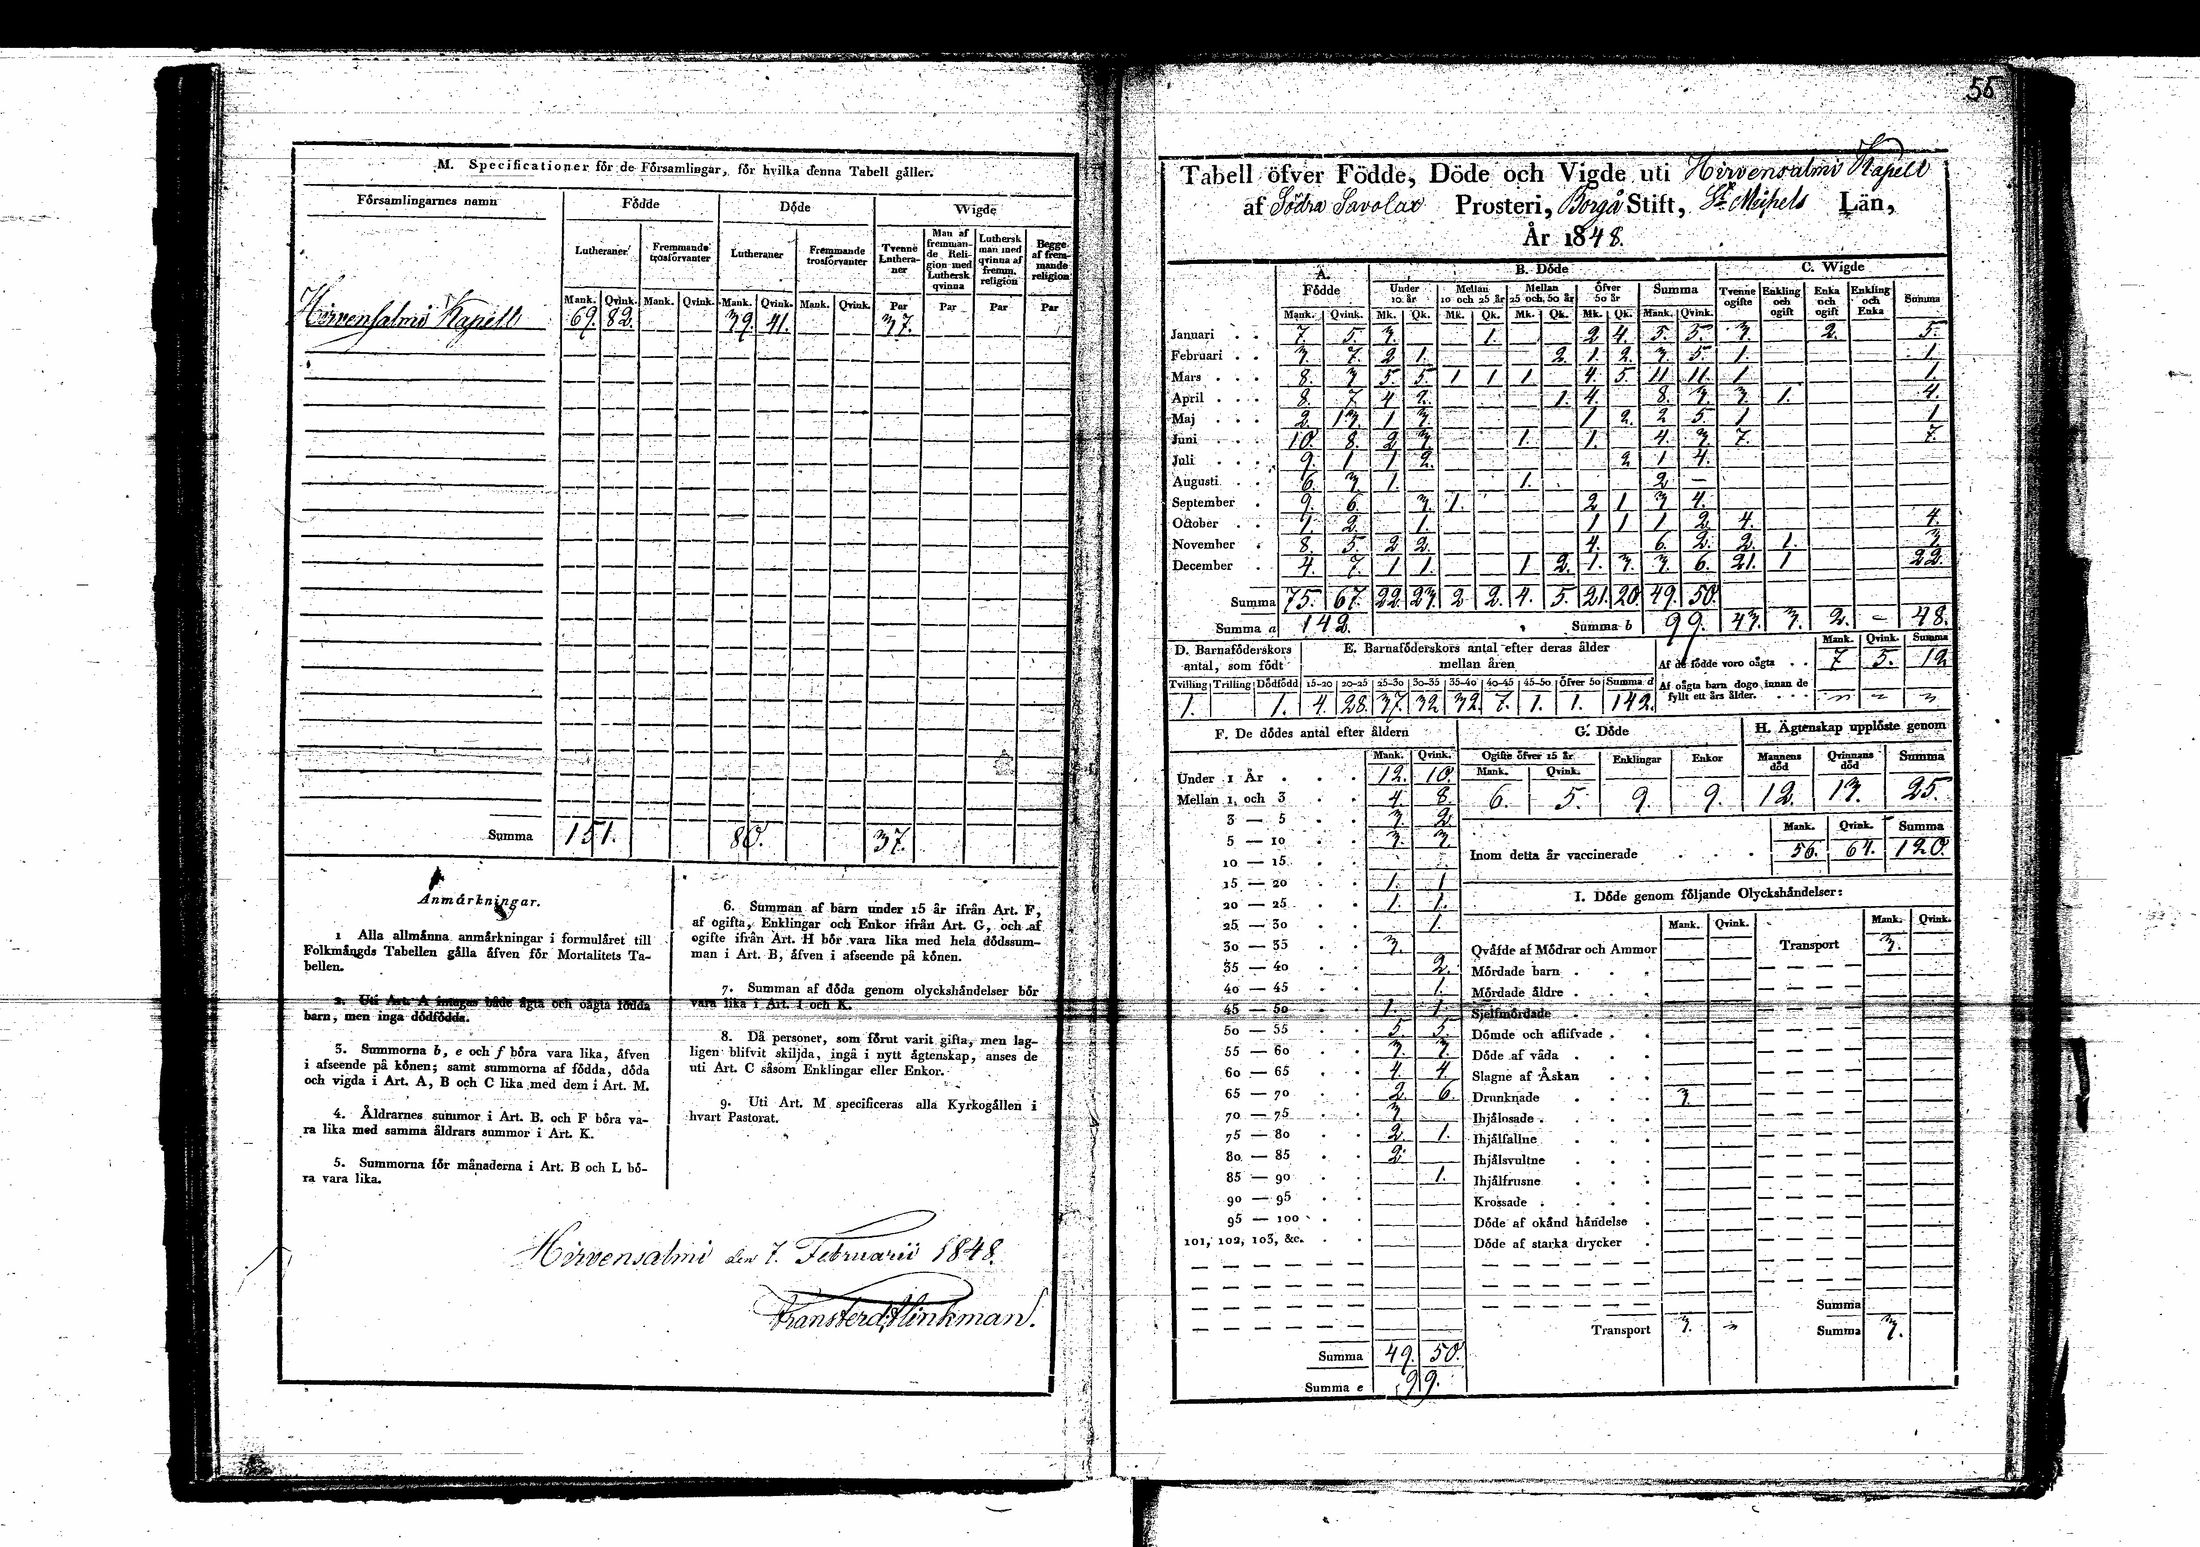 M. Specificationer för de Församlingar, för hvilka denna Tabell gäller.
Församlingarnes namn Födde Döde Wigde
Lutheraner Fremmande trosförvanter Lutheraner Fremmande trosförvanter Tvenne Lutheraner Man af fremmande Religion med Luthersk qvinna Luthersk man med qvinna af fremm. religion Begge af fremmande religion
Mank. Qvink. Mank. Qvink. Mank. Qvink. Mank. Qvink. Par Par Par Par
Hirvensalmi Kapell 69. 82. 39. 41. 37.
Summa 151. 80. 37.
Anmärkningar.
1 Alla allmänna anmärkningar i formuläret till
Folkmängds Tabellen gälla äfven för Mortalitets Ta-
bellen.
2. Uti Art. A intagas både ägta och oägta födda
barn, men inga dödfödda.
3. Summorna b, e och f böra vara lika, äfven
i afseende på könen; samt summorna af födda, döda
och vigda i Art. A, B och C lika med dem i Art. M.
4. Åldrarnes summor i Art. B. och F böra va-
ra lika med samma åldrars summor i Art. K.
5. Summorna för månaderna i Art. B och L bö-
ra vara lika.
6. Summan af barn under 15 år ifrån Art. F,
af ogifta, Enklingar och Enkor ifrån Art. G, och af
ogifte ifrån Art. H bör vara lika med hela dödssum-
man i Art. B, äfven i afseende på könen.
7. Summan af döda genom olyckshändelser bör
vara lika i Art. I och K.
8. Då personer, som förut varit gifta, men lag-
ligen blifvit skiljda, ingå i nytt ägtenskap, anses de
uti Art. C såsom Enklingar eller Enkor.
9. Uti Art. M specificeras alla Kyrkogällen i
hvart Pastorat.
Hirvensalmi den 7. Februarii 1848.
55
Tabell öfver Födde, Döde och Vigde uti Hirvensalmi Kapell
af Södra Savolax Prosteri, Borgå Stift, St. Michels Län,
År 1848.
A. Födde B. Döde C. Wigde
Under 10 år Mellan 10 och 25 år Mellan 25 och 50 år Öfver 50 år Summa Tvenne ogifte Enkling och ogift Enka och ogift Enkling och Enka Summa
Mank. Qvink. Mk. Qk. Mk. Qk. Mk. Qk. Mk. Qk. Mank. Qvink.
Januari 7. 5. 3. 1. 2 4. 5. 5. 3. 2. 5.
Februari 3. 7. 2 1. 2. 1. 2. 3. 5. 1. 1.
Mars 8. 3 5. 5. 1 1 1. 4. 5. 11 11. 1. 1.
April 8. 7 4 2. 1. 4. 8. 3. 3. 1. 4.
Maj 2. 13. 1 3. 1 2. 2 5. 1 1
Juni 10. 8. 2 3. 1. 1. 4. 3. 7. 7.
Juli 9. 1 1 2. 2 1 4.
Augusti 6. 3 1. 1. 2 —
September 9. 6. 3 1. 2 1 3 4.
October 1. 2. 1. 1 1 1 2. 4. 4.
November 8. 5. 2 2. 4. 6. 2. 2. 1. 3.
December 4. 7. 1 1. 1 2. 1. 3. 3. 6. 21. 1 22.
Summa 75. 67. 22. 23. 2 2. 4. 5. 21. 20. 49. 50.
Summa a 142. Summa b 99. 43. 3. 2. – 48.
D. Barnaföderskors antal, som födt
E. Barnaföderskors antal efter deras ålder mellan åren
Mank. Qvink. Summa
Af de födde voro oägta 7 5. 12
Tvilling Trilling Dödfödd 15-20 20-25 25-30 30-35 35-40 40-45 45-50 Öfver 50 Summa d
1. 1. 4. 28. 37. 32. 32. 7. 1. 1. 142.
Af oägta barn dogo innan de fyllt ett års ålder.
F. De dödes antal efter åldern
Mank. Qvink.
Under 1 År 12. 10.
Mellan 1, och 3 4. 8.
3 — 5 3. 2.
5 — 10 3. 3.
10 — 15
15 — 20 1. 1
20 — 25 1. 1.
25 — 30 1.
30 — 35 3.
35 — 40 2.
40 — 45 1.
45 — 50 1. 1.
50 — 55 5. 5.
55 — 60 3. 3.
60 — 65 4. 4.
65 — 70 2. 6.
70 — 75 3
75 — 80 2. 1.
80 — 85 2.
85 — 90 1.
90 — 95
95 — 100
101, 102, 103, &c.
Summa 49. 50.
Summa e 99.
G. Döde
Ogifte öfver 15 år Enklingar Enkor
Mank. Qvink.
6. 5. 9. 9.
H. Ägtenskap upplöste genom
Mannens död Qvinnans död Summa
12. 13. 25.
Mank. Qvink. Summa
Inom detta år vaccinerade 56. 64. 120.
I. Döde genom följande Olyckshändelser:
Mank. Qvink. Mank. Qvink.
Qväfde af Mödrar och Ammor Transport 3.
Mördade barn
Mördade äldre
Sjelfmördade
Dömde och aflifvade
Döde af våda
Slagne af Åskan
Drunknade 3.
Ihjälosade
Ihjälfallne
Ihjälsvultne
Ihjälfrusne
Krossade
Döde af okänd händelse
Döde af starka drycker
Summa
Transport 3. Summa 3.